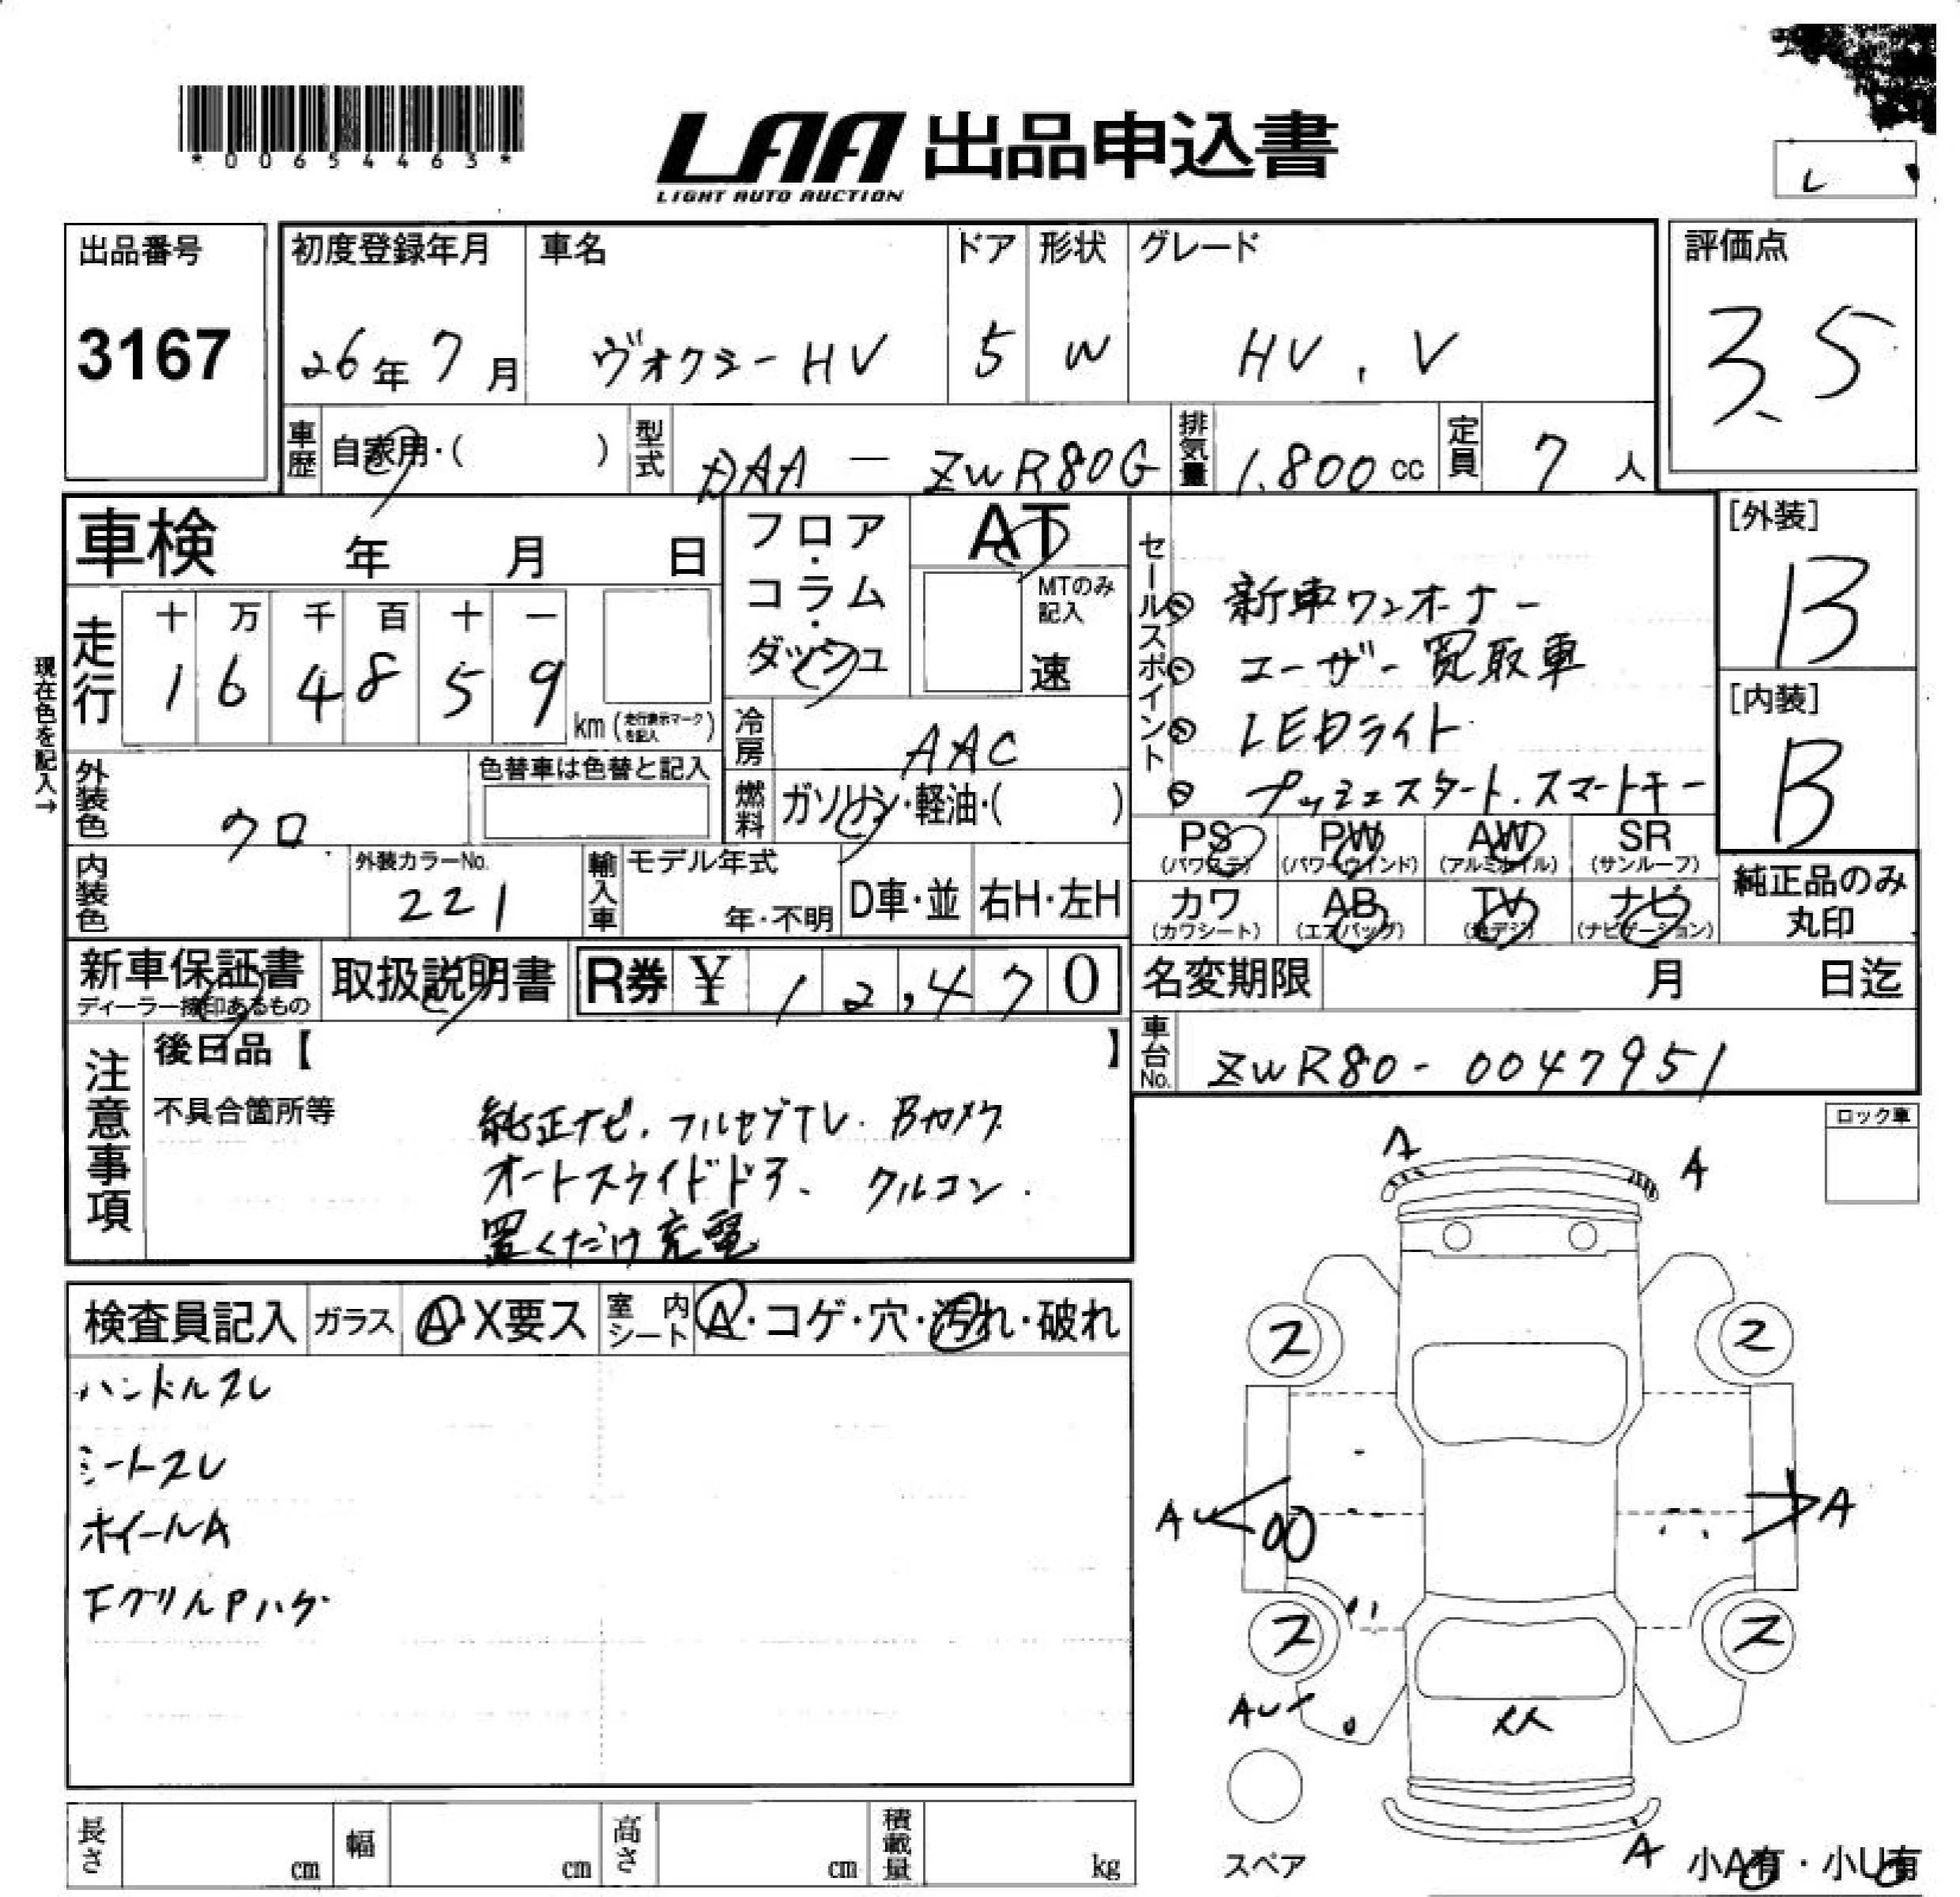 *00654463*
LAA 出品申込書
LIGHT AUTO AUCTION
出品番号
3167
初度登録年月
26年7月
車名
ヴォクシーHV
ドア
5
形状
W
グレード
HV, V
評価点
3.5
車歴
自家用・( )
型式
DAA - ZWR80G
排気量
1.800cc
定員
7人
車検 年 月 日
フロア・コラム・ダッシュ
AT
MTのみ記入
速
セールスポイント
新車ワンオーナー
ユーザー買取車
LEDライト
プッシュスタート.スマートキー
[外装]
B
[内装]
B
現在色を記入→
走行
十 万 千 百 十 一
1 6 4 8 5 9
km (走行表示マークを記入)
冷房
AAC
燃料
ガソリン・軽油・( )
外装色
クロ
色替車は色替と記入
内装色
外装カラーNo.
221
輸入車
モデル年式
年・不明
D車・並
右H・左H
PS (パワステ)
PW (パワーウインド)
AW (アルミホイル)
SR (サンルーフ)
カワ (カワシート)
AB (エアバッグ)
TV (地デジ)
ナビ (ナビゲーション)
純正品のみ丸印
新車保証書
ディーラー捺印あるもの
取扱説明書
R券 ¥ 12,470
名変期限 月 日迄
車台No.
ZWR80-0047951
注意事項
後日品【 】
不具合箇所等
純正ナビ.フルセグTV.Bカメラ
オートスライドドア、クルコン.
置くだけ充電
ロック車
検査員記入
ガラス
A・X要ス
室内シート
A・コゲ・穴・汚れ・破れ
ハンドルスレ
シートスレ
ホイールA
FグリルPハゲ
A
A
ス
ス
AU
A
ス
ス
AU
A
スペア
小A有・小U有
長さ cm
幅 cm
高さ cm
積載量 kg